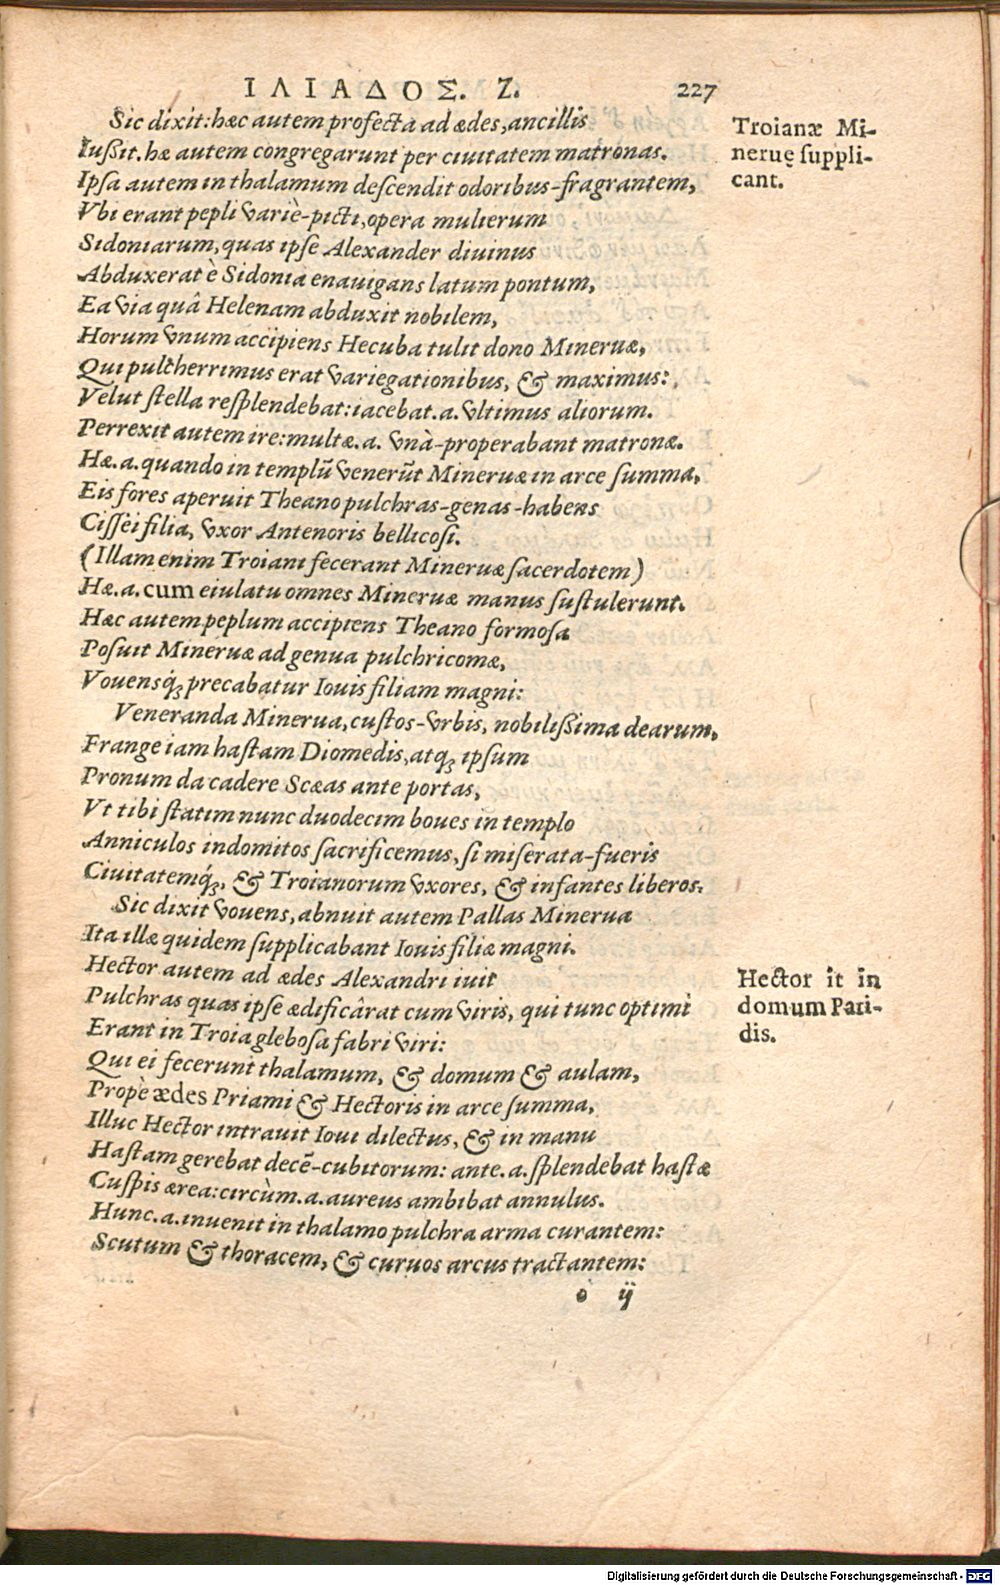 ΙΛΙΑΔΟΣ. Ζ. 227
Sic dixit: hæc autem profecta ad ædes, ancillis
Iußit. hæ autem congregarunt per ciuitatem matronas.
Ipsa autem in thalamum descendit odoribus-fragrantem,
Vbi erant pepli variè-picti, opera mulierum
Sidoniarum, quas ipse Alexander diuinus
Abduxerat è Sidonia enauigans latum pontum,
Ea via quâ Helenam abduxit nobilem,
Horum vnum accipiens Hecuba tulit dono Mineruæ,
Qui pulcherrimus erat variegationibus, & maximus:
Velut stella resplendebat: iacebat.a. vltimus aliorum.
Perrexit autem ire: multæ.a. vnà-properabant matronæ.
Hæ.a. quando in templũ venerũt Mineruæ in arce summa,
Eis fores aperuit Theano pulchras-genas-habens
Cissei filia, vxor Antenoris bellicosi.
(Illam enim Troiani fecerant Mineruæ sacerdotem)
Hæ.a. cum eiulatu omnes Mineruæ manus sustulerunt.
Hæc autem peplum accipiens Theano formosa
Posuit Mineruæ ad genua pulchricomæ,
Vouensq́; precabatur Iouis filiam magni:
Veneranda Minerua, custos-vrbis, nobilißima dearum,
Frange iam hastam Diomedis, atq; ipsum
Pronum da cadere Scæas ante portas,
Vt tibi statim nunc duodecim boues in templo
Anniculos indomitos sacrificemus, si miserata-fueris
Ciuitatemq́;, & Troianorum vxores, & infantes liberos:
Sic dixit vouens, abnuit autem Pallas Minerua
Ita illæ quidem supplicabant Iouis filiæ magni.
Hector autem ad ædes Alexandri iuit
Pulchras quas ipse ædificârat cum viris, qui tunc optimi
Erant in Troia glebosa fabri viri:
Qui ei fecerunt thalamum, & domum & aulam,
Propè ædes Priami & Hectoris in arce summa,
Illuc Hector intrauit Ioui dilectus, & in manu
Hastam gerebat decẽ-cubitorum: ante.a. splendebat hastæ
Cuspis ærea: circùm.a. aureus ambibat annulus.
Hunc.a. inuenit in thalamo pulchra arma curantem:
Scutum & thoracem, & curuos arcus tractantem:
o ij
Troianæ Mi-
neruę suppli-
cant.
Hector it in
domum Pari-
dis.
Digitalisierung gefördert durch die Deutsche Forschungsgemeinschaft - DFG